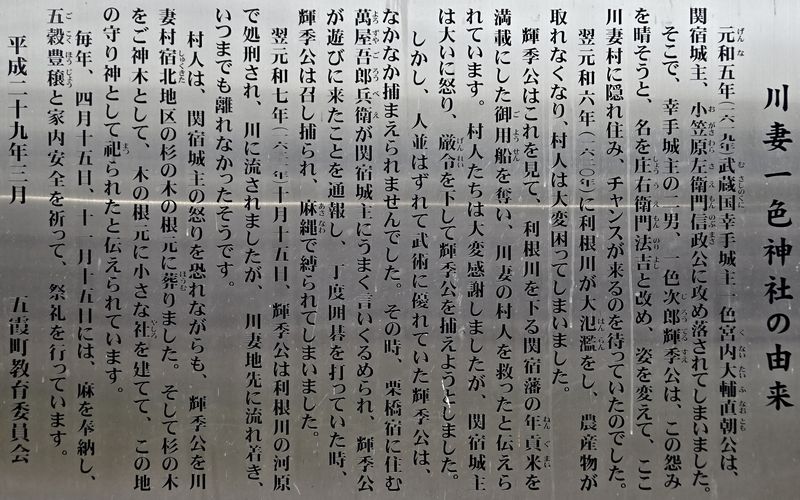 川妻一色神社の由来
元和五年（一六一九年）武蔵国幸手城主一色宮内大輔直朝公は、
関宿城主、小笠原左衛門信政公に攻め落されてしまいました。
そこで、幸手城主の二男、一色次郎輝季公は、この怨み
を晴そうと、名を庄右衛門法吉と改め、姿を変えて、ここ
川妻村に隠れ住み、チャンスが来るのを待っていたのでした。
翌元和六年（一六二〇年）に利根川が大氾濫をし、農産物が
取れなくなり、村人は大変困ってしまいました。
輝季公はこれを見て、利根川を下る関宿藩の年貢米を
満載にした御用船を奪い、川妻の村人を救ったと伝えら
れています。村人たちは大変感謝しましたが、関宿城主
は大いに怒り、厳令を下して輝季公を捕えようとしました。
しかし、人並はずれて武術に優れていた輝季公は、
なかなか捕まえられませんでした。その時、栗橋宿に住む
萬屋吾郎兵衛が関宿城主にうまく言いくるめられ、輝季公
が遊びに来たことを通報し、丁度囲碁を打っていた時、
輝季公は召し捕られ、麻縄で縛られてしまいました。
翌元和七年（一六二一年）十月十五日、輝季公は利根川の河原
で処刑され、川に流されましたが、川妻地先に流れ着き、
いつまでも離れなかったそうです。
村人は、関宿城主の怒りを恐れながらも、輝季公を川
妻村宿北地区の杉の木の根元に葬りました。そして杉の木
をご神木として、木の根元に小さな社を建てて、この地
の守り神として祀られたと伝えられています。
毎年、四月十五日、十一月十五日には、麻を奉納し、
五穀豊穣と家内安全を祈って、祭礼を行っています。
平成二十九年三月　五霞町教育委員会